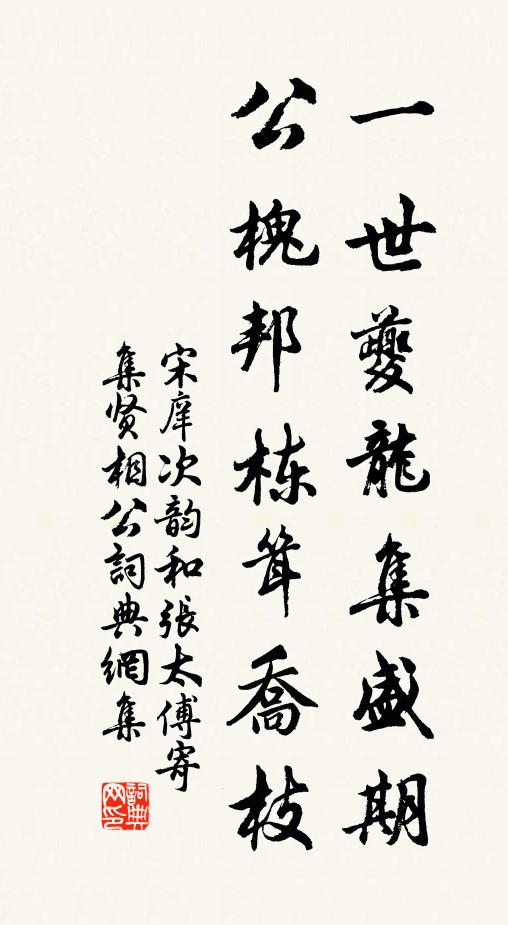 一世夔龍集盛期
公槐邦栋耸喬枝
宋庠次韵和張太傅寄
集贤相公詞典網集
詞典网印